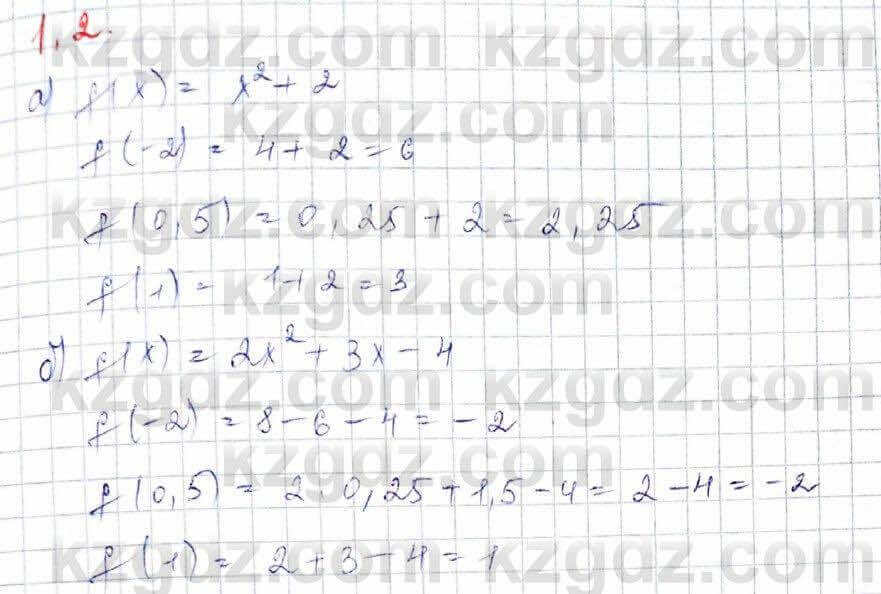 1.2.
а) f(x) = x² + 2
f(-2) = 4 + 2 = 6
f(0,5) = 0,25 + 2 = 2,25
f(1) = 1 + 2 = 3
б) f(x) = 2x² + 3x - 4
f(-2) = 8 - 6 - 4 = -2
f(0,5) = 2·0,25 + 1,5 - 4 = 2 - 4 = -2
f(1) = 2 + 3 - 4 = 1
kzgdz.com kzgdz.com
kzgdz.com
kzgdz.com kzgdz.com
kzgdz.com
kzgdz.com kzgdz.com
kzgdz.com
kzgdz.com kzgdz.com